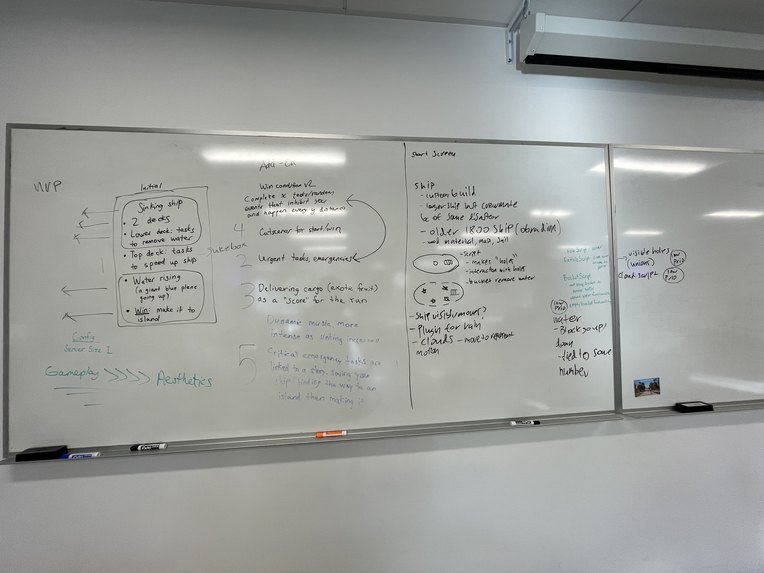 MVP
Initial
Sinking ship
• 2 decks
• Lower deck: tasks
to remove water
• Top deck: tasks
to speed up ship
• Water rising
(a giant blue plane
going up)
• Win: make it to
island
Config
Server Size 1
Gameplay >>>> Aesthetics
Jukebox
Win condition v2
Complete x tasks/random
events that inhibit user
and happen every y distance
4 Cutscenes for start/win
2 Urgent tasks, emergencies
3 Delivering cargo (exotic fruit)
as a "score" for the run
Dynamic music, more
intense as sinking increases
5 Critical emergency tasks are
linked to a story, saving your
ship finding the way to an
island then making it
Start Screen
Ship
- custom build
- larger ship but
bc of some disaster
- older 1800 ship
- wood material, map, sail
- Script
- makes "holes"
- interaction with holes
- bucket remove water
- Ship visibly mount?
- Plugin for rain
- Clouds - move to represent
motion
Bucket Script
low
Prio
water
- Block goes up/
down
- tied to some
number
visible holes
(unions)
low
Prio
cloud script
low
Prio